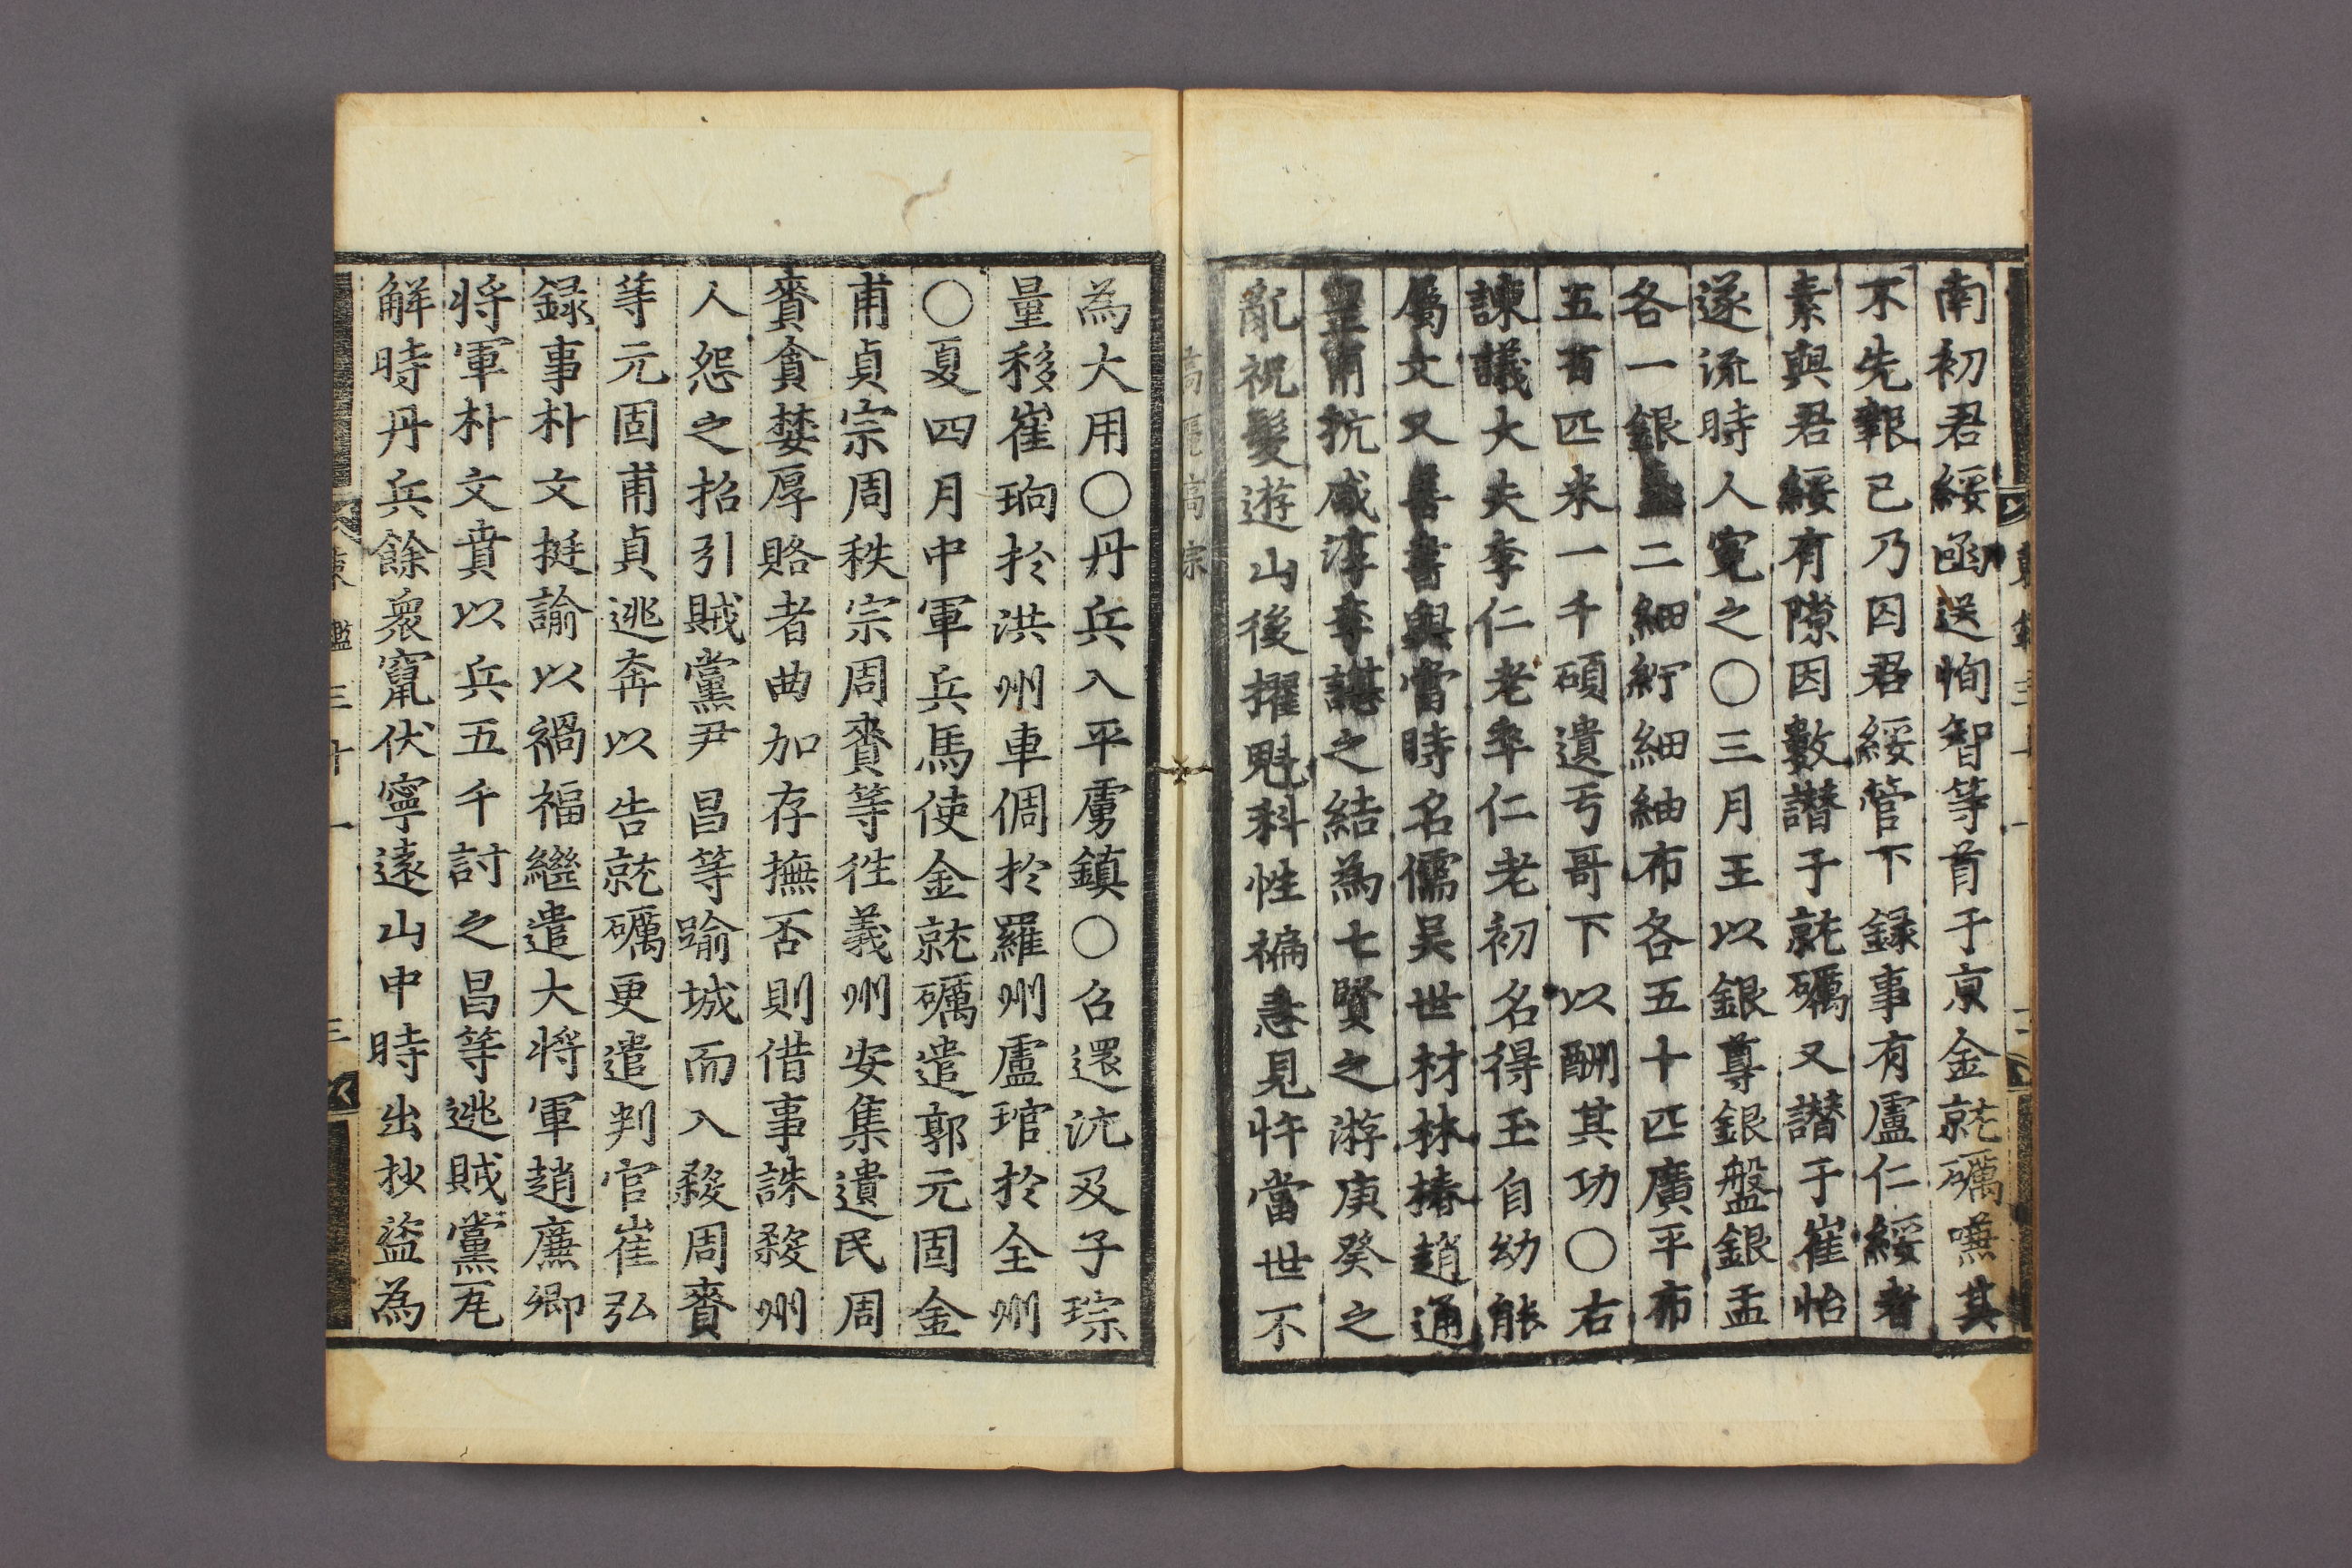 南初君綏函送恂智等首于京金就礪嘸其
不先報已乃囚君綏管下録事有盧仁綏者
素與君綏有隙因數譖于就礪又譖于崔怡
遂流時人寃之〇三月王以銀尊銀盤銀盂
各一銀盞二細紵細紬布各五十匹廣平布
五百匹米一千碩遺亐哥下以酬其功〇右
諫議大夫李仁老卒仁老初名得玉自幼能
屬文又善書與當時名儒吳世材林椿趙通
皇甫抗咸淳李諶之結為七賢之游庚癸之
亂祝髮遊山後擢魁科性褊恚見忤當世不
高麗高宗
為大用〇丹兵入平虜鎮〇召還沆及子琮
量移崔珦於洪州車倜於羅州盧琯於全州
〇夏四月中軍兵馬使金就礪遣郭元固金
甫貞宗周秩宗周賚等徃義州安集遺民周
賚貪婪厚賂者曲加存撫否則借事誅殺州
人怨之招引賊黨尹昌等踰城而入殺周賚
等元固甫貞逃奔以告就礪更遣判官崔弘
録事朴文挺諭以禍福繼遣大將軍趙廉卿
將軍朴文賁以兵五千討之昌等逃賊黨瓦
解時丹兵餘衆竄伏寧遠山中時出抄盜為
東鑑三十一 三